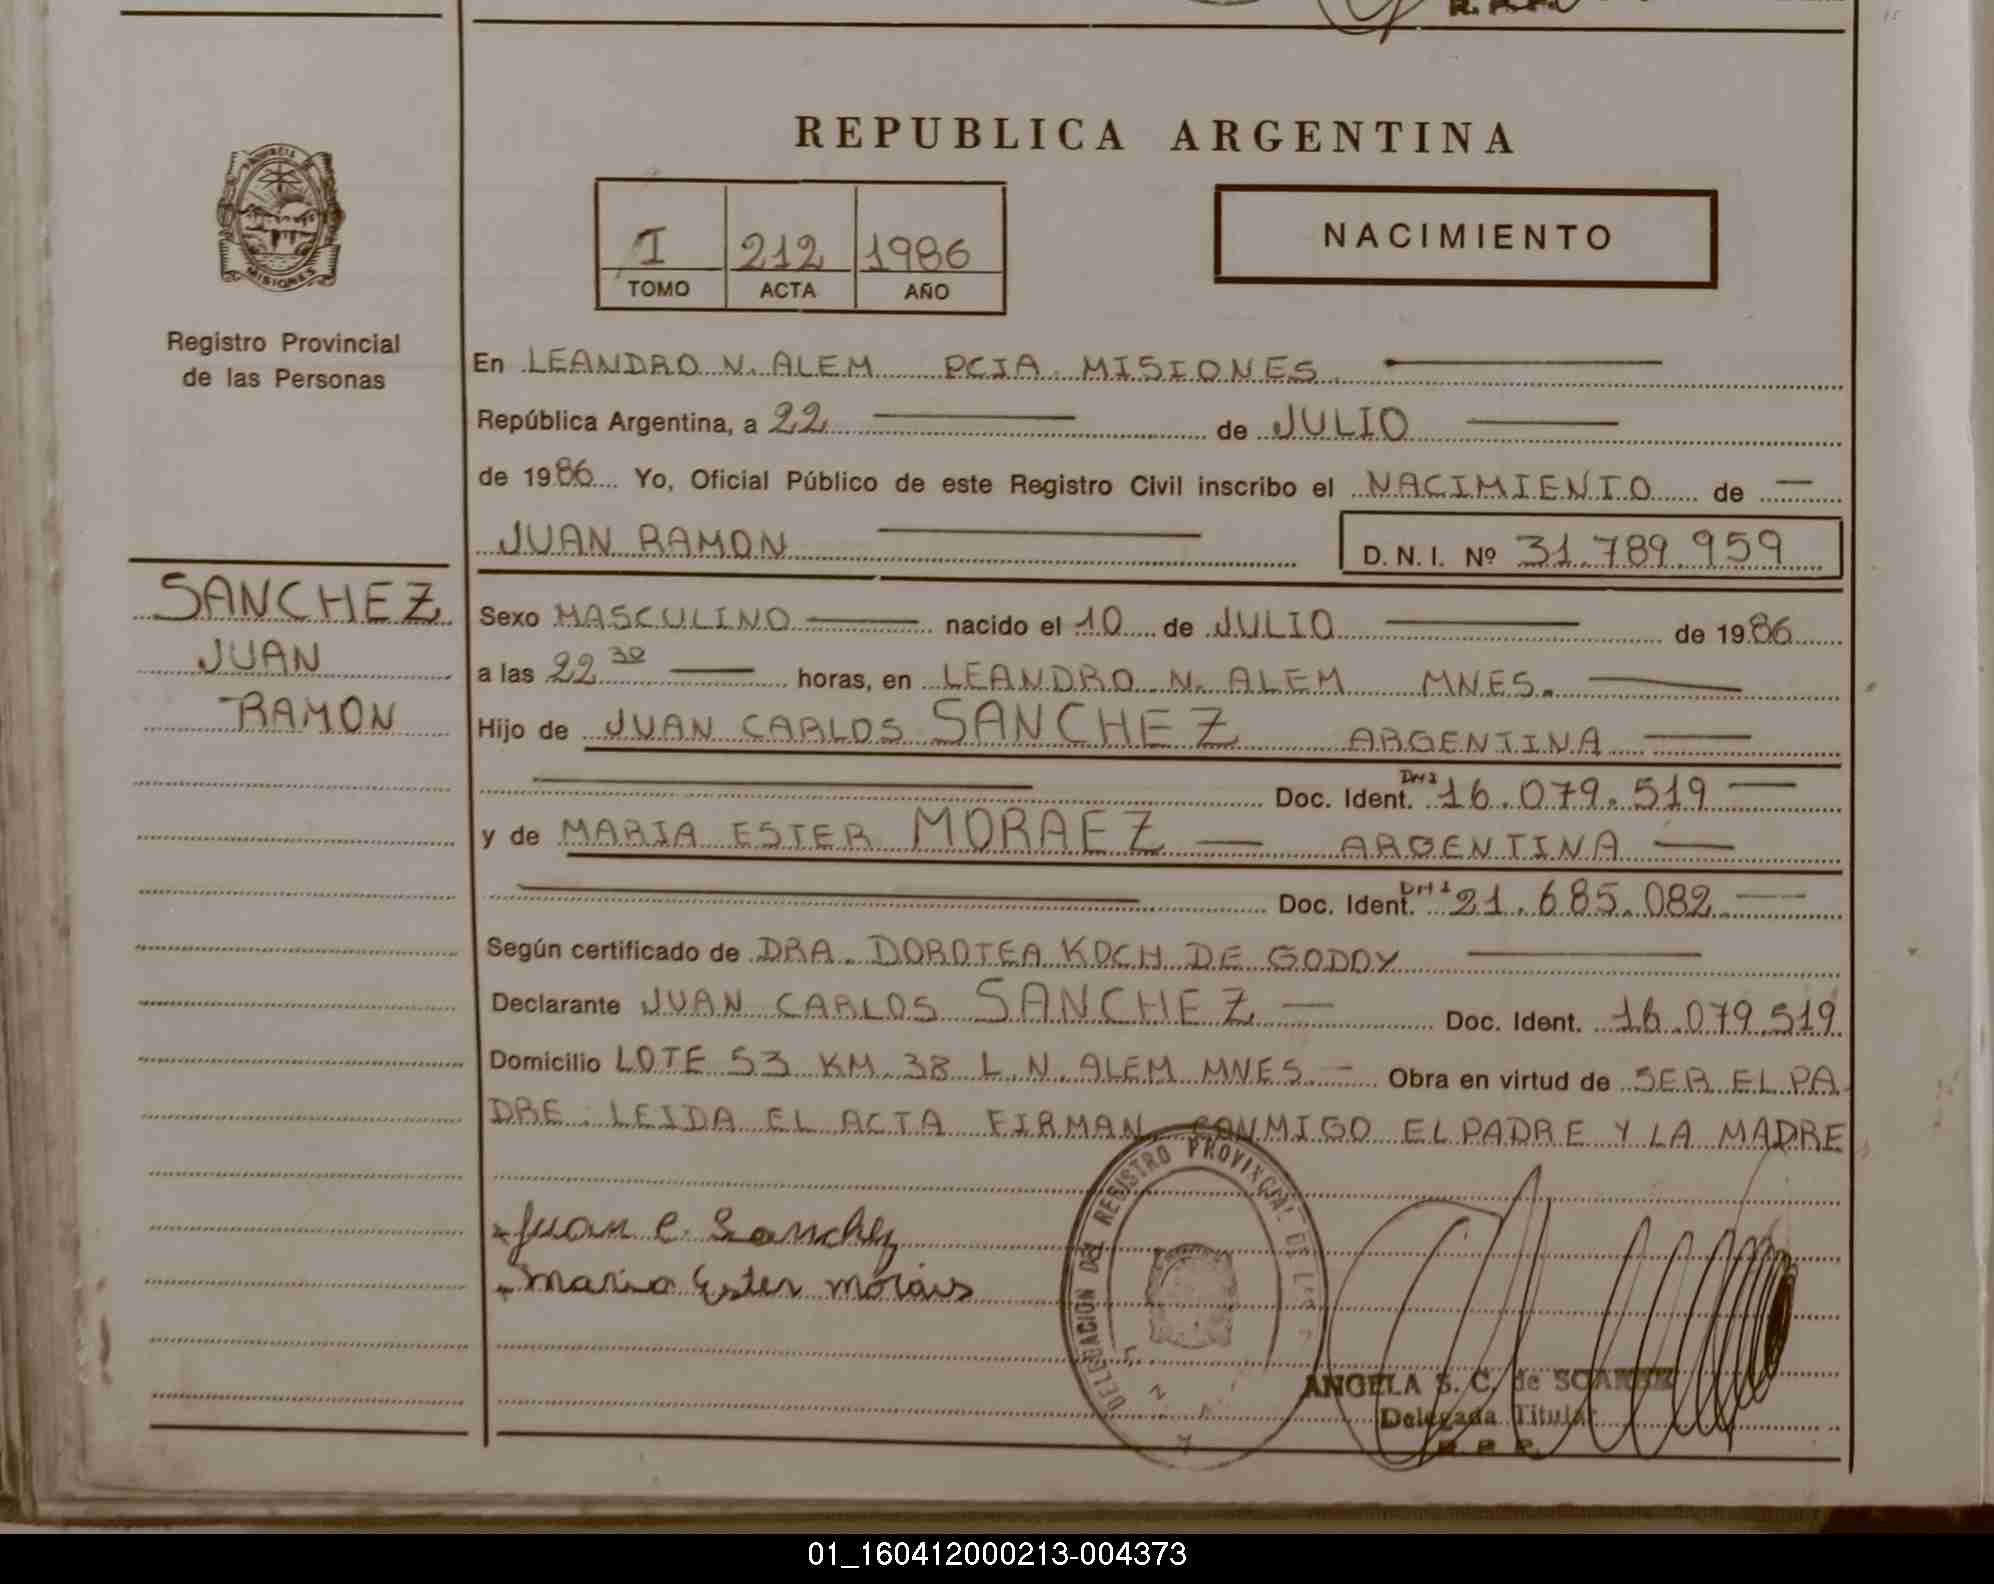 REPUBLICA ARGENTINA
PROVINCIA
MISIONES
I 212 1986
TOMO ACTA AÑO
NACIMIENTO
Registro Provincial
de las Personas
SANCHEZ
JUAN
RAMON
En LEANDRO N. ALEM PCIA. MISIONES
República Argentina, a 22 de JULIO
de 1986 Yo, Oficial Público de este Registro Civil inscribo el NACIMIENTO de
JUAN RAMON D. N. I. Nº 31.789.959
Sexo MASCULINO nacido el 10 de JULIO de 1986
a las 22 30 horas, en LEANDRO N. ALEM MNES.
Hijo de JUAN CARLOS SANCHEZ ARGENTINA
Doc. Ident. 16.079.519
y de MARIA ESTER MORAEZ ARGENTINA
Doc. Ident. 21.685.082
Según certificado de DRA. DOROTEA KOCH DE GODOY
Declarante JUAN CARLOS SANCHEZ Doc. Ident. 16.079.519
Domicilio LOTE 53 KM. 38 L. N. ALEM MNES. Obra en virtud de SER EL PA
DRE. LEIDA EL ACTA FIRMAN CONMIGO EL PADRE Y LA MADRE
Juan C. Sanchez
Maria Ester Morais
DELEGACION DEL REGISTRO PROVINCIAL DE
ANGELA S. C. de
Delegada Titular
R. P. P.
01_160412000213-004373